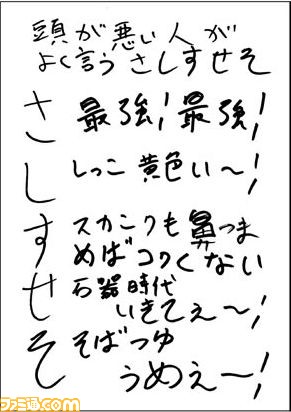 頭が悪い人が
よく言うさしすせそ
さ 最強!最強!
し しっこ黄色い〜!
す スカンクも鼻つま
めばコワくない
せ 石器時代
いきてぇ〜!
そ そばつゆ
うめぇ〜!
ファミ通.com